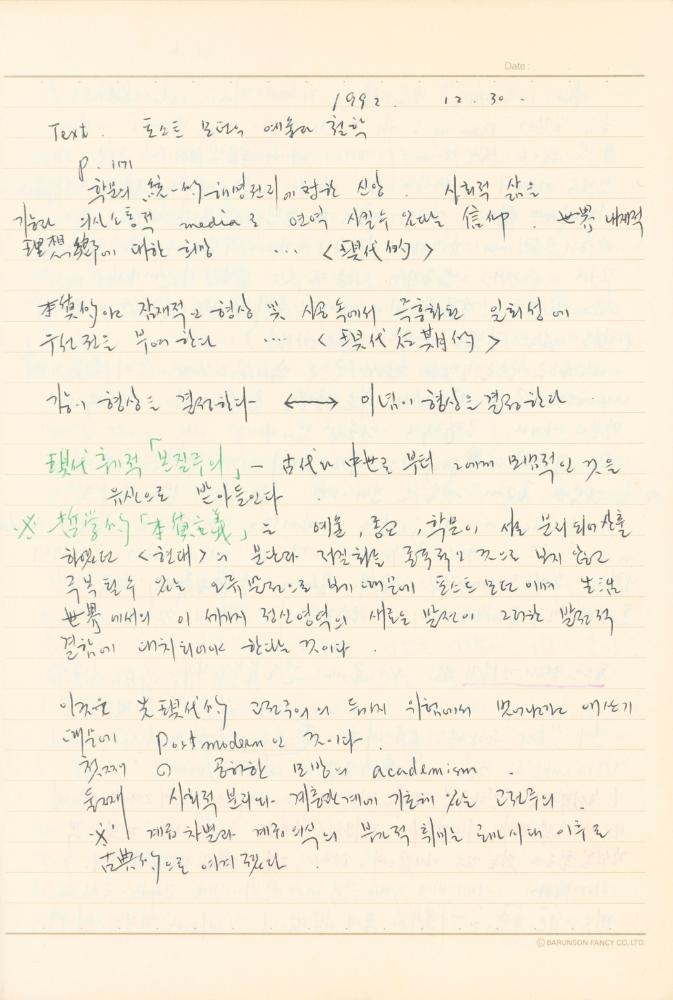 Date :
1992. 12. 30.
Text. 포스트 모던의 예술과 철학
p. 171
학문의 統一的 해명권리에 향한 신앙. 사회적 삶을
기능과 의사소통적 media로 번역 시킬수 있다는 信仰. 世界 내재적
理想鄕에 대한 희망 … <現代的>
本質的 이고 잠재적인 형상 및 시공 속에서 즉흥화된 일회성에
우선권을 부여한다 … <現代 后期的>
기능이 형상을 결정한다 ⟷ 이념이 형상을 결정한다.
現代 후기적 「본질주의」 - 古代와 中世로 부터 그에게 모범적인 것을
유산으로 받아들인다.
※ 哲学的 「本質主義」는 예술, 종교, 학문이 서로 분리되어
하였던 <현대>의 분단과 것으로 보지 않고
극복될수 있는 보기 때문에 포스트모던 이며 生活
世界에서의 이 세가지 정신영역의 새로운 발전이 그러한 발전적
결함에 대치되어야 한다는 것이다.
이것은 先現代的 고전주의의 두가지 위험에서 벗어나려고 애쓰기
때문에 Postmodern인 것이다.
첫째 의 공허한 모방의 academism.
둘째 사회적 분리와 계층관계에 기초해 있는 고전주의.
※ 계층차별과 계층의식의 이후로
古典的으로 여겨졌다.
© BARUNSON FANCY CO., LTD.